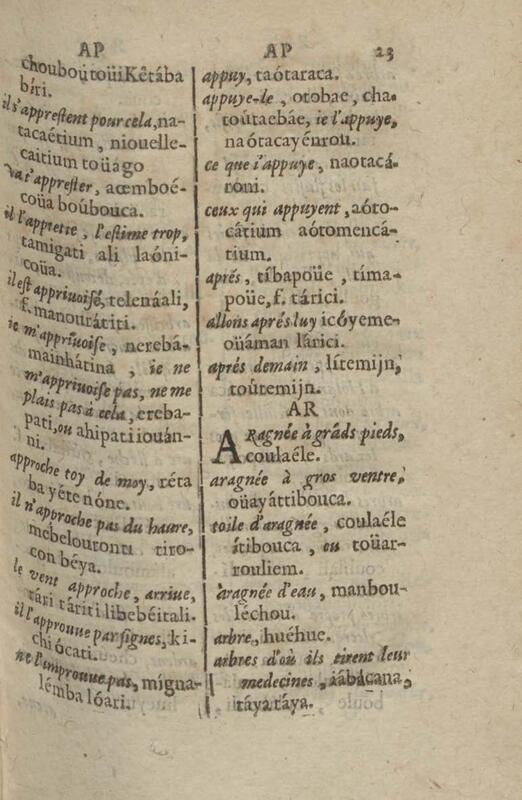 AP
choubouṫoüiKêtába
bíri.
il s'apprestent pour cela, na-
tacaétium, niouelle-
caitium toüago
va t'apprester, acemboé-
coüa boúbouca.
il l'appretie, l'estime trop,
tamigati ali laóni-
coüa.
il est appriuoisé, telenáali,
f. manourátiti.
ie m'appriuoise, nerebá-
mainhátina, ie ne
m'appriuoise pas, ne me
plais pas à cela, ereba-
pati, ou ahipati iouán-
ni.
approche toy de moy, réta
ba yéte nóne.
il n'approche pas du haure,
mebeloutontı tiro-
con béya.
le vent approche, arriue,
tári táriti libebéitali.
il l'approuue par signes, ki-
chi ócati.
ne l'improuue pas, mígna-
lémba lóari.
AP 23
appuy, taótaraca.
appuye-le, otobae, cha-
toútaebáe, ie l'appuye,
naótacayénrou.
ce que i'appuye, naotacá-
roni.
ceux qui appuyent, aóto-
cátium aótomencá-
tium.
aprés, tíbapoüe, tíma-
poüe, f. tárici.
allons aprés luy icóyeme-
oüáman lárici.
aprés demain, lítemijn,
toútemijn.
AR
ARagnée à grãds pieds,
coulaéle.
aragnée à gros ventre,
oüayáttibouca.
toile d'aragnée, coulaéle
átibouca, ou toüar-
rouliem.
aragnée d'eau, manbou-
léchou.
arbre, huéhue.
arbres d'où ils tirent leur
medecines, iábácana,
táya táya.